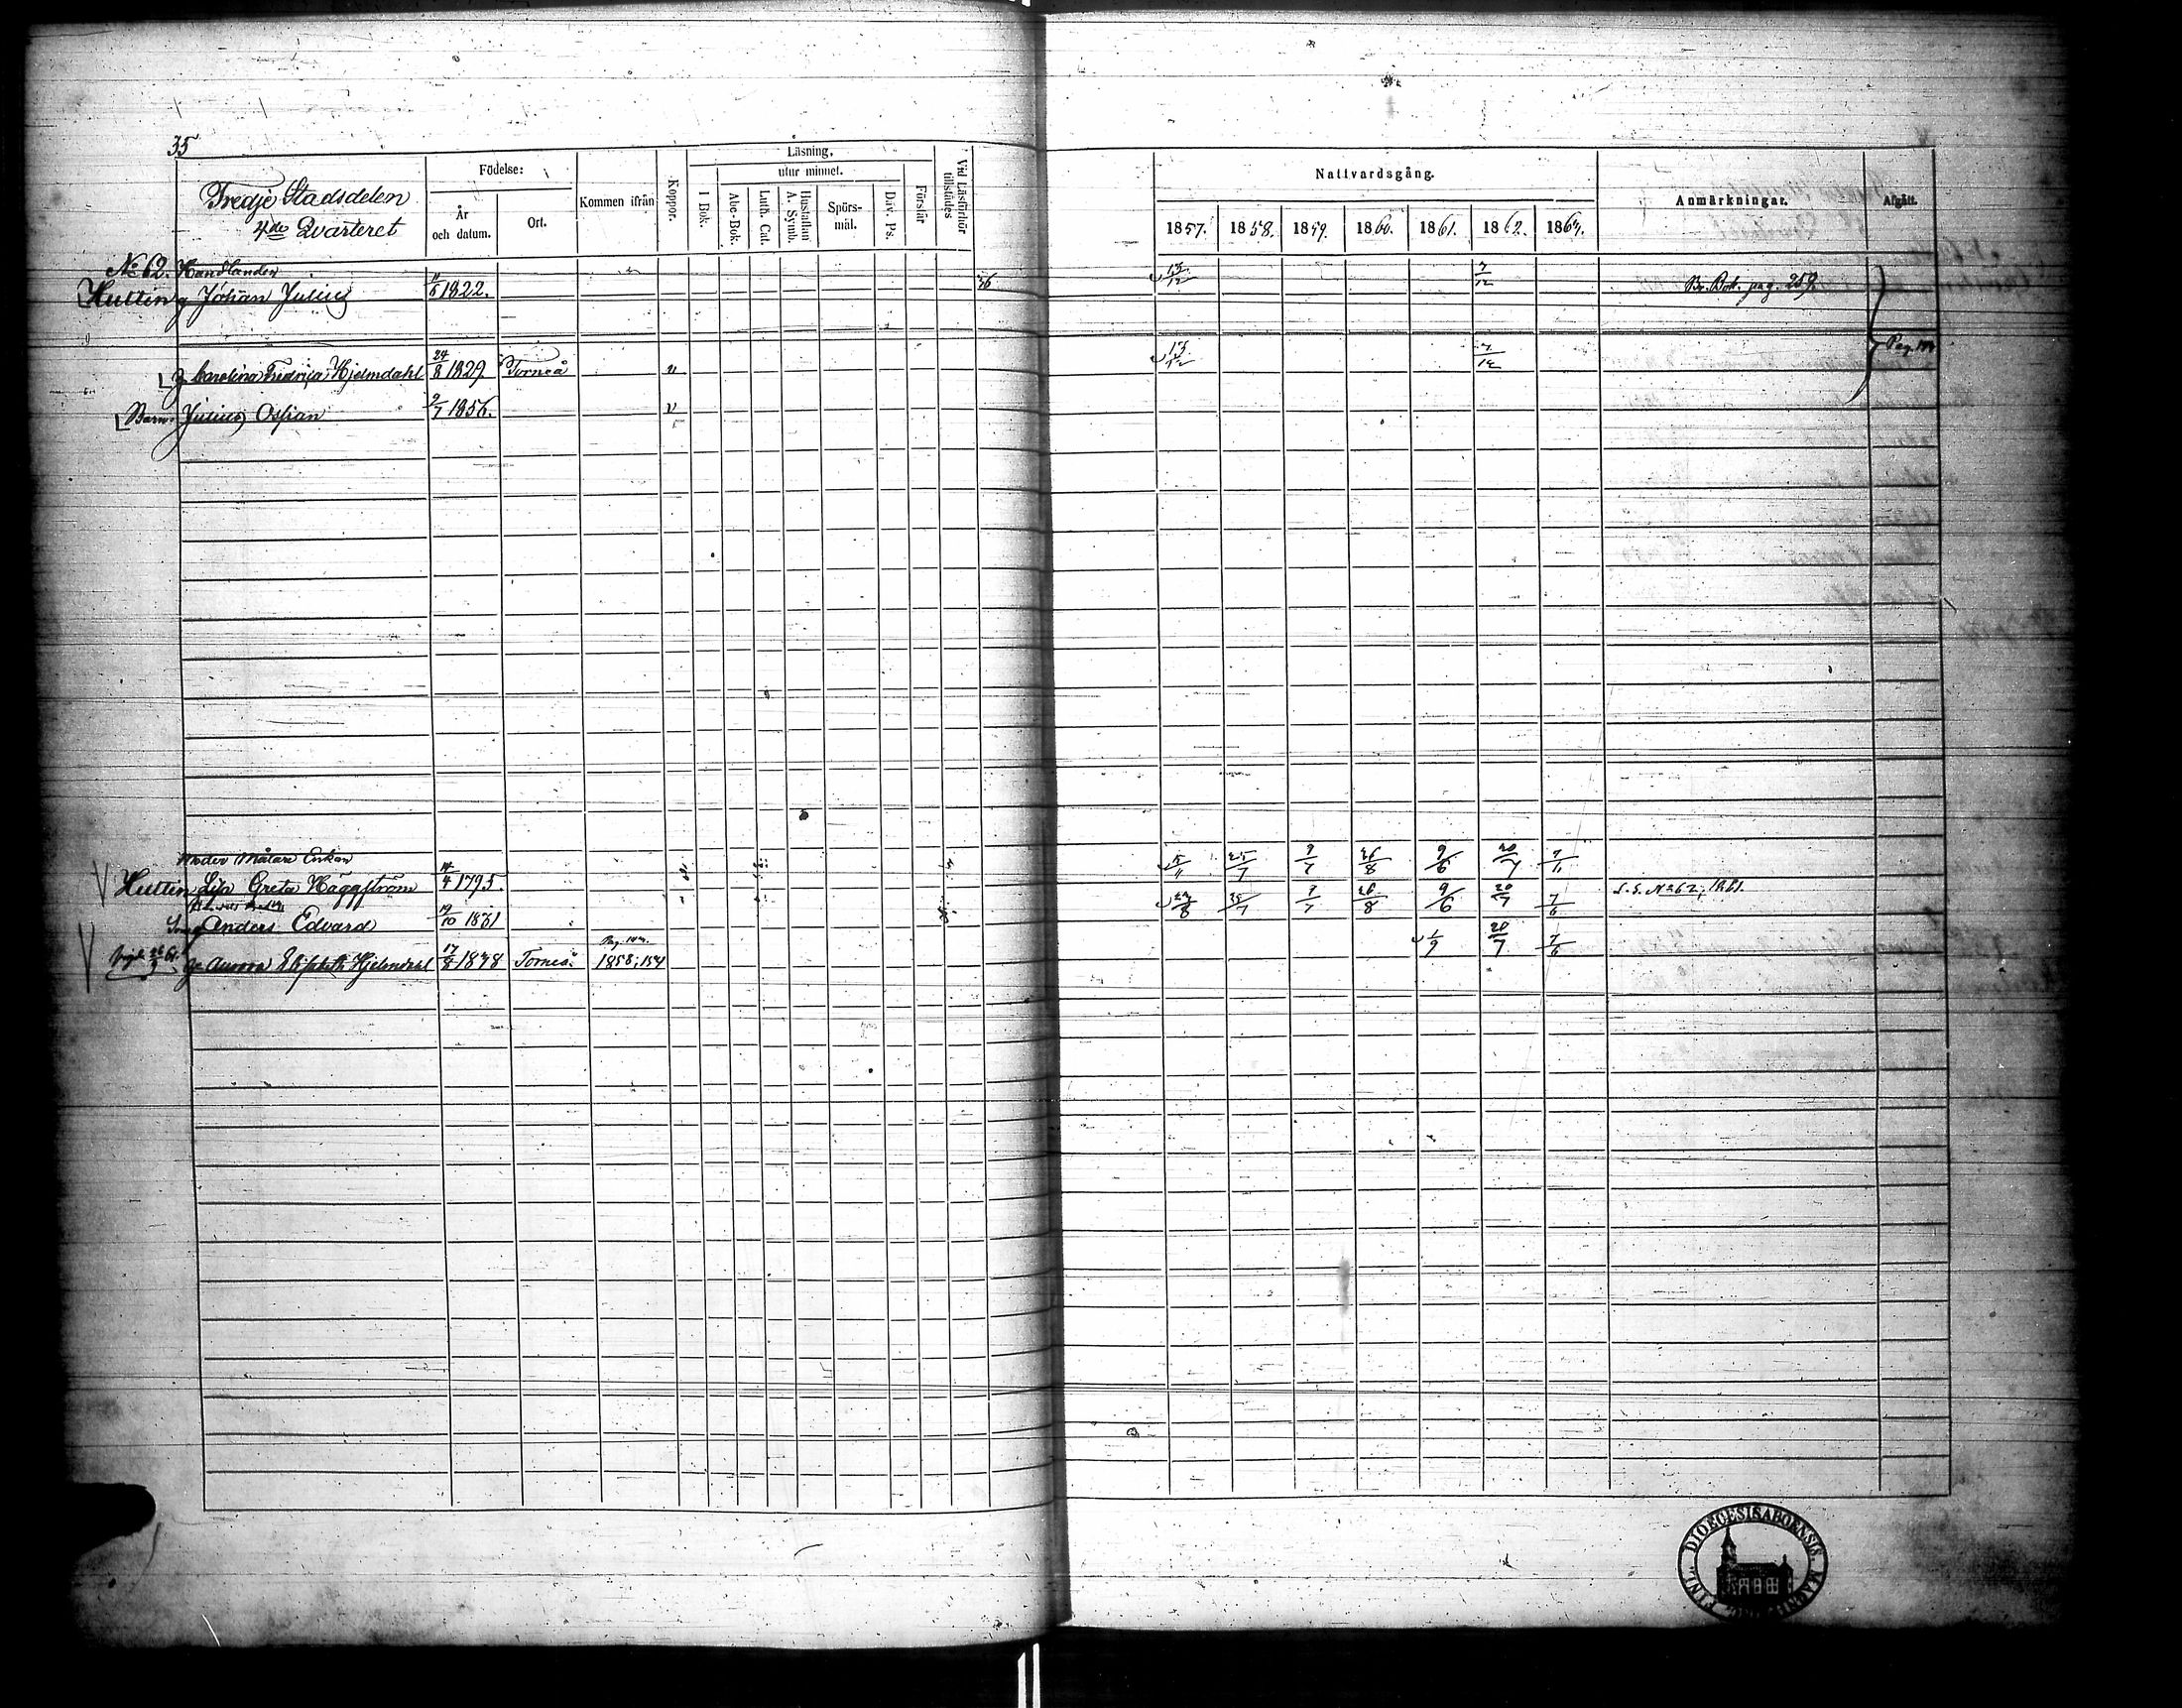 35
Tredje Stadsdelen
4de Qvarteret
Födelse:
År och datum.
Ort.
Kommen ifrån
Koppor.
Läsning,
utur minnet.
I Bok.
Abc-Bok.
Luth. Cat.
Hustaflan A. Symb.
Spörs-mål.
Dav. Ps.
Förstår
Vid Läsförhör tillstädes
Nattvardsgång.
1857. 1858. 1859. 1860. 1861. 1862. 1864.
Anmärkningar.
Afgått.
No 62. Handlanden
Huttin Johan Julius 1822. 13/12 7/12 pag. 259.
Carolina Fredrica Hjelmdahl 24/8 1829 Torneå v 13/12 7/12 Pag.
Barn: Julius Ossian 2/7 1856. v
Moder Målare Enkan
Huttin Lisa Greta Häggström 14/4 1795. 25/7 9/7 26/8 9/6 20/7
Son Anders Edvard 19/10 1831 9/7 26/8 9/6 20/7 7/6 No 62, 1861.
H. Aurora Elisabeth Hjelmdahl 17/8 1838 Torneå 1858; 154 1/9 20/7 7/6
DIOECESIS ABOENSIS